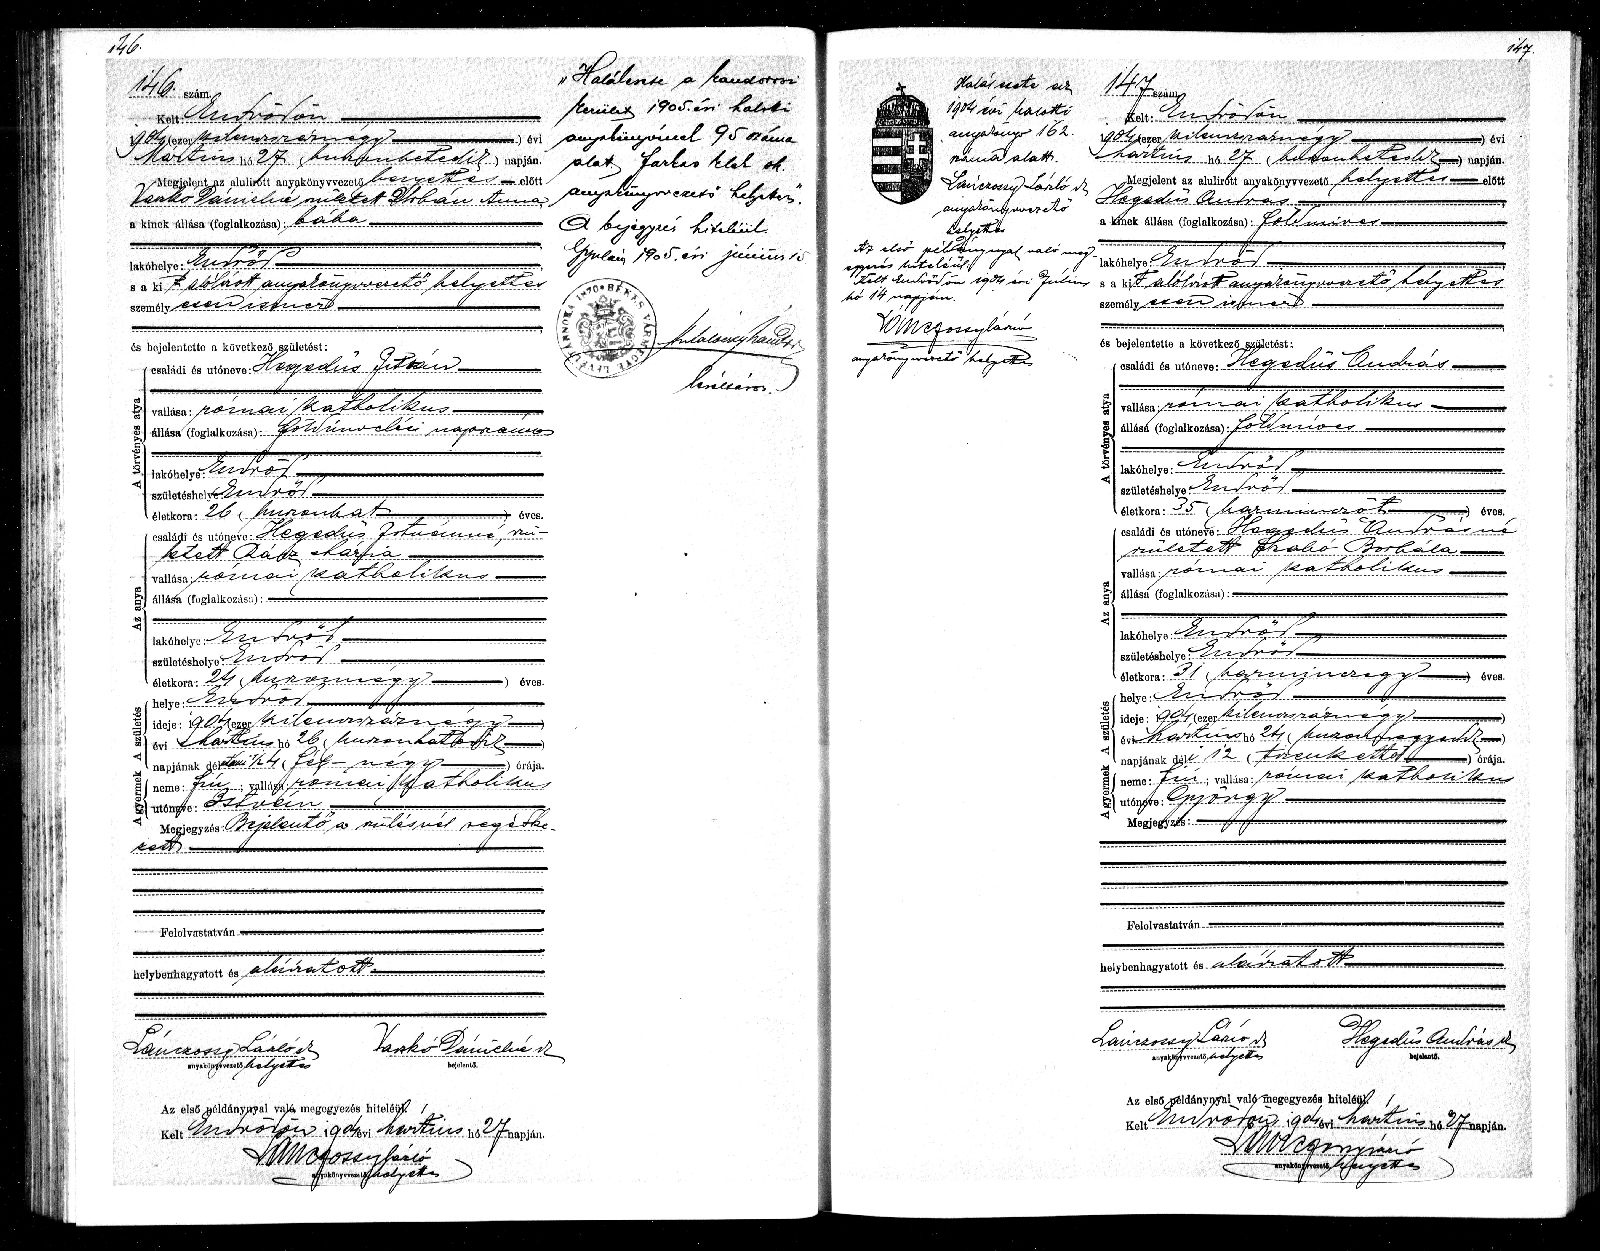 146.
146. szám.
Kelt Endrődön
1904 (ezer kilenczszáznégy ) évi
Martius hó 27 (huszonhetedik) napján.
Megjelent az alulirott anyakönyvvezető helyettes előtt
Varkó Dánielné, született Anna
a kinek állása (foglalkozása): bába
lakóhelye: Endrőd
s a kit alólirott anyakönyvvezető helyettes
személyesen ismer
és bejelentette a következő születést:
A törvényes atya
családi és utóneve: Hegedüs István
vallása: római katholikus
állása (foglalkozása): földmivelési napszámos
lakóhelye: Endrőd
születéshelye: Endrőd
életkora: 26 (huszonhat ) éves.
Az anya
családi és utóneve: Hegedüs Istvánné, szü-
letett Rácz Mária
vallása: római katholikus
állása (foglalkozása):
lakóhelye: Endrőd
születéshelye: Endrőd
életkora: 24 (huszonnégy ) éves.
A születés
helye: Endrőd
ideje: 1904 (ezer kilenczszáznégy )
évi Martius hó 26 (huszonhatodik )
napjának délutáni 1/2 4 (fél-négy ) órája.
A gyermek
neme: fiu; vallása: római katholikus
utóneve: István
Megjegyzés: Bejelentő a szülésnél segédke-
zett
Felolvastatván
helybenhagyatott és aláiratott
Lánczossy László sk Varkó Dánielné sk
anyakönyvvezető helyettes bejelentő.
Az első példánynyal való megegyezés hiteléül.
Kelt Endrődön 1904 évi Martius hó 27 napján.
Lánczossy László
anyakönyvvezető helyettes
„Halálesete a kondorosi
kerület 1905. évi halotti
anyakönyvének 95 száma
alatt. Farkas sk.
anyakönyvvezető helyettes".
A bejegyzés hiteléül.
Gyulán, 1905. évi június 15
BÉKÉS VÁRMEGYE LEVÉLTÁRNOKA 1870
levéltáros.
147.
147 szám.
Kelt: Endrődön
1904 (ezer kilenczszáznégy ) évi
Martius hó 27 (huszonhetedik ) napján.
Megjelent az alulirott anyakönyvvezető helyettes előtt
Hegedüs András
a kinek állása (foglalkozása): földmives
lakóhelye: Endrőd
s a kit alólirott anyakönyvvezető helyettes
személyesen ismer
és bejelentette a következő születést:
A törvényes atya
családi és utóneve: Hegedüs András
vallása: római katholikus
állása (foglalkozása): földmives
lakóhelye: Endrőd
születéshelye: Endrőd
életkora: 35 (harminczöt ) éves.
Az anya
családi és utóneve: Hegedüs Andrásné
született Szabó Borbála
vallása: római katholikus
állása (foglalkozása):
lakóhelye: Endrőd
születéshelye: Endrőd
életkora: 31 (harminczegy ) éves.
A születés
helye: Endrőd
ideje: 1904 (ezer kilenczszáznégy )
évi Martius hó 24 (huszonnegyedik )
napjának déli 12 (tizenkettő ) órája.
A gyermek
neme: fiu; vallása: római katholikus
utóneve: György
Megjegyzés:
Felolvastatván
helybenhagyatott és aláiratott
Lánczossy László sk Hegedüs András sk
anyakönyvvezető helyettes bejelentő.
Az első példánynyal való megegyezés hiteléül.
Kelt Endrődön 1904 évi Martius hó 27 napján.
Lánczossy László
anyakönyvvezető helyettes
Halálesete az
1904 évi halotti
anyakönyv 162.
száma alatt.
Lánczossy László sk
anyakönyvvezető
helyettes
Az első példánynyal való meg-
egyezés hiteléül.
Kelt Endrődön 1904 évi Julius
hó 14 napján.
Lánczossy László
anyakönyvvezető helyettes